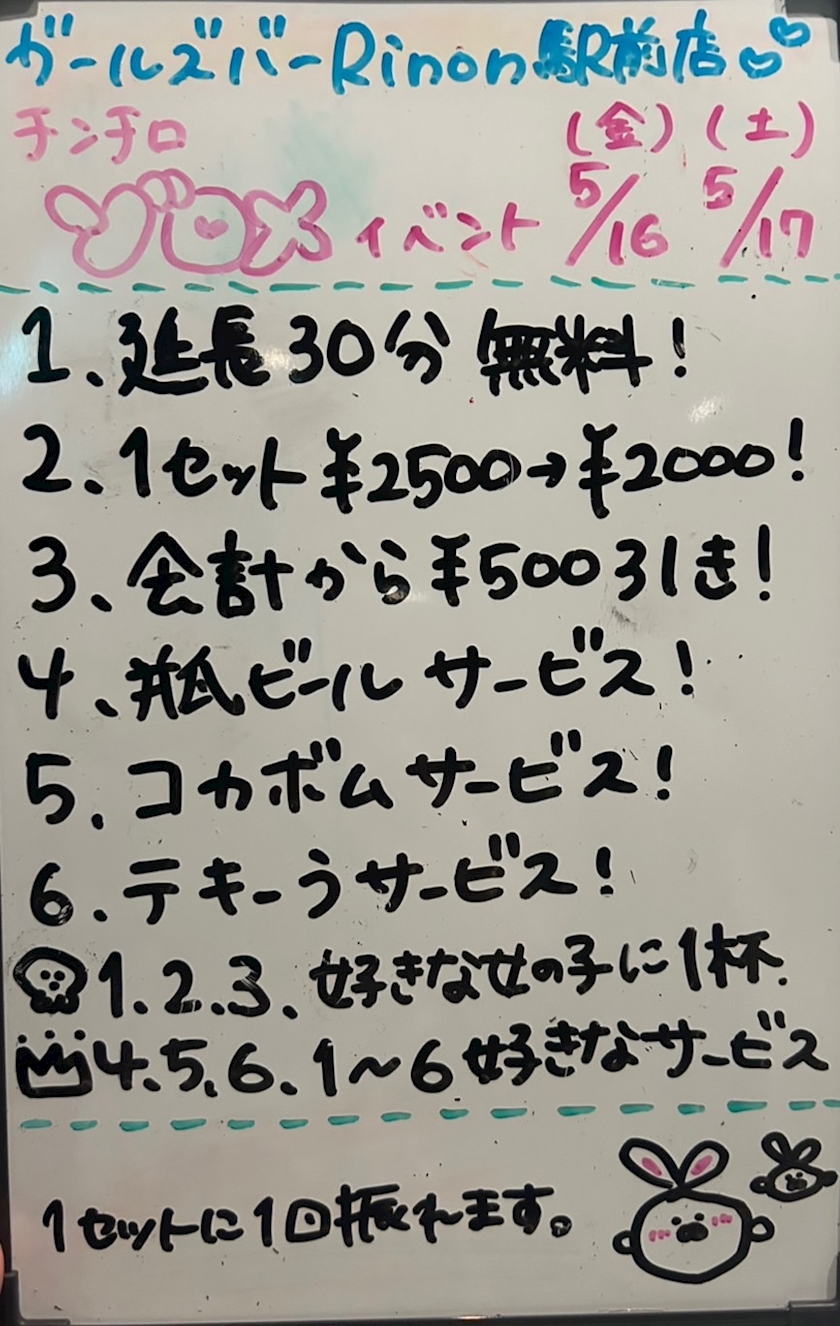 ガールズバーRinon駅前店
チンチロ
(金) (土)
ゾロメイベント 5/16 5/17
1、延長30分 無料!
2、1セット¥2500→¥2000!
3、会計から¥500引き!
4、瓶ビールサービス!
5、コカボムサービス!
6、テキーラサービス!
1.2.3、好きな女の子に1杯
4.5.6、1~6好きなサービス
1セットに1回振れます。